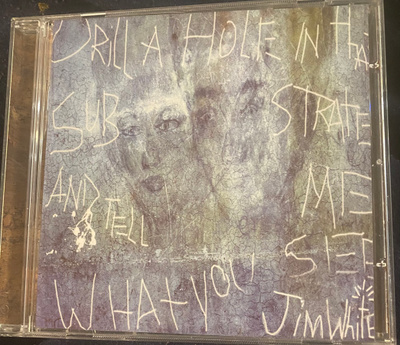 DRILL A HOLE IN THAT
SUB STRATE
AND TELL ME
WHAT YOU SEE
JimWhite